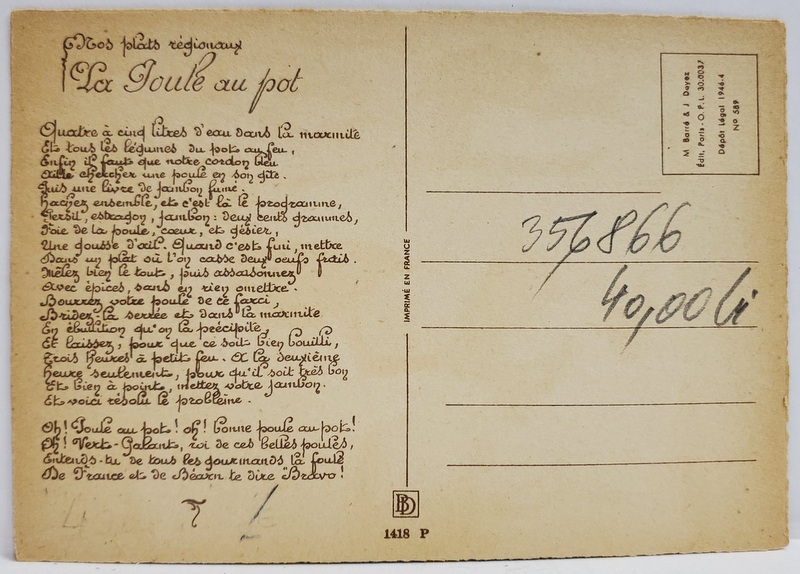 Nos plats régionaux
La Poule au pot
Quatre à cinq litres d'eau dans la marmite
Et tous les légumes du pot au feu,
Enfin il faut que notre cordon bleu
Aille chercher une poule en son gîte.
Puis une livre de jambon fumé.
Hachez ensemble, et c'est là le programme,
Persil, estragon, jambon : deux cents grammes,
Foie de la poule, cœur, et gésier,
Une gousse d'ail. Quand c'est fini, mettre
Dans un plat où l'on casse deux oeufs frais.
Mêlez bien le tout, puis assaisonnez
Avec épices, sans en rien omettre.
Bourrez votre poule de ce farci,
Bridez-la serrée et dans la marmite
En ébullition qu'on la précipite,
Et laissez, pour que ce soit bien bouilli,
Trois heures à petit feu. A la deuxième
heure seulement, pour qu'il soit très bon
Et bien à point, mettez votre jambon.
Et voici résolu le problème.
Oh! Poule au pot! oh! bonne poule au pot!
Oh! Vert-Galant, roi de ces belles poules,
Entends-tu de tous les gourmands la foule
De France et de Béarn te dire "Bravo!
IMPRIMÉ EN FRANCE
M. Barré & J. Dayez
Édit. Paris - O. P. L. 30.0037
Dépôt Légal 1946-4
N° 589
356866
40,00 li
BD
1418 P